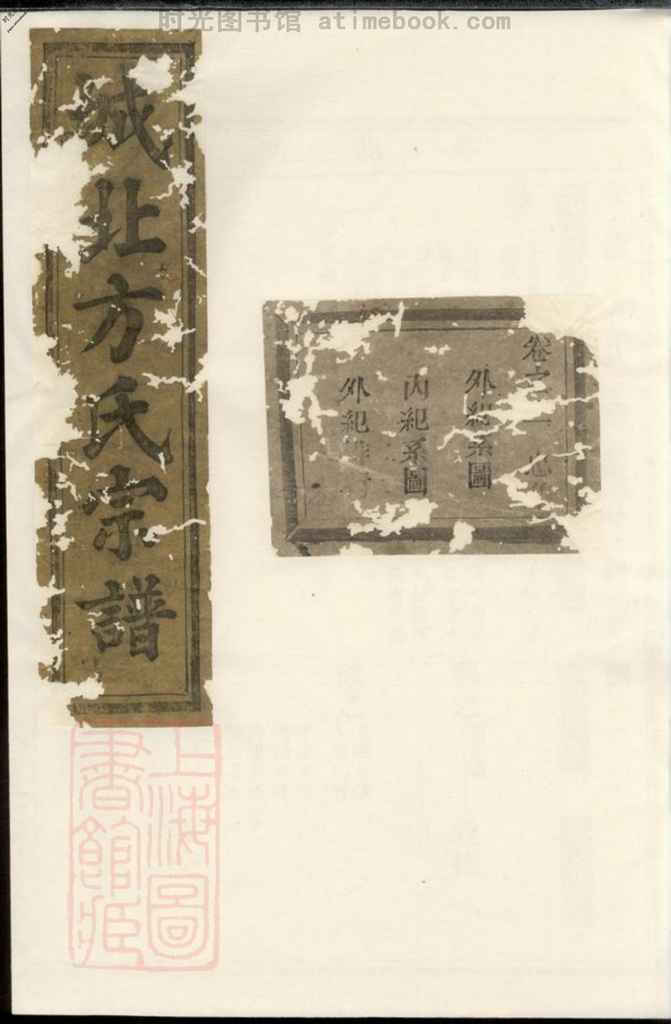 时光图书馆 atimebook.com
城北方氏宗譜
卷之一
外紀系圖
內紀系圖
外紀
上海圖
書館藏